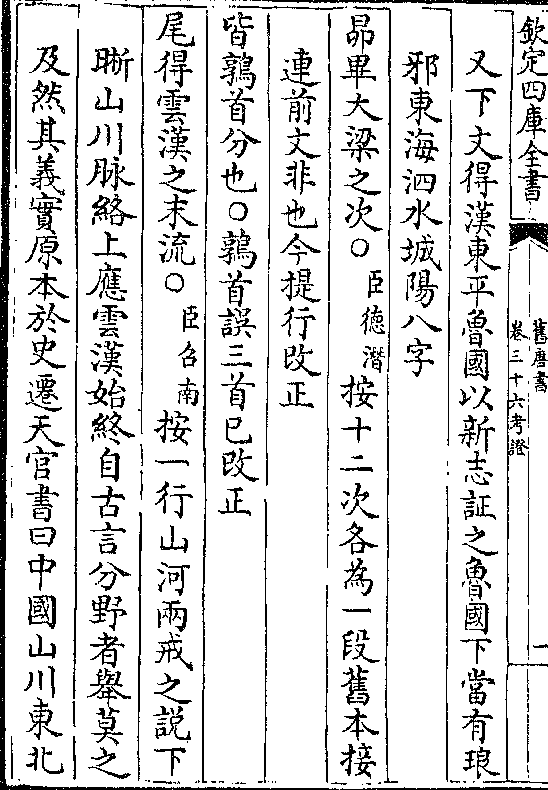 欽定四庫全書
舊唐書
卷三十六考證
一
又下文得漢東平魯國以新志証之魯國下當有琅
邪東海泗水城陽八字
昴畢大梁之次○臣德潛按十二次各為一段舊本接
連前文非也今提行改正
皆鶉首分也○鶉首誤三首已改正
尾得雲漢之末流○臣召南按一行山河兩戒之説下
晰山川脉絡上應雲漢始終自古言分野者舉莫之
及然其義實原本於史遷天官書曰中國山川東北